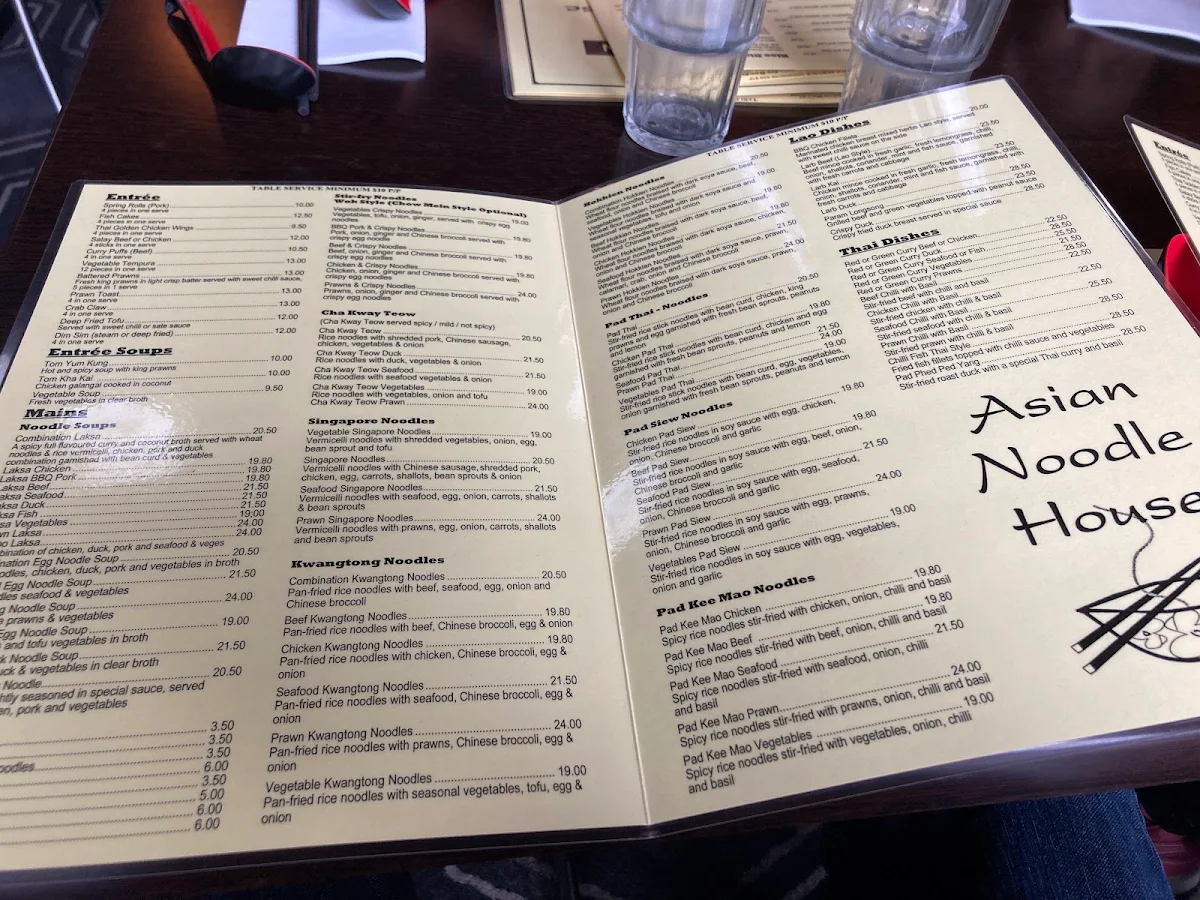 TABLE SERVICE MINIMUM $10 P/P
Entrée
Spring Rolls (Pork) 10.00
4 pieces in one serve
Fish Cakes 12.50
4 pieces in one serve
Thai Golden Chicken Wings 9.50
4 pieces in one serve
Satay Beef or Chicken 12.00
4 sticks in one serve
Curry Puffs (Beef) 10.50
4 in one serve
Vegetable Tempura 13.00
12 pieces in one serve
Battered Prawns 13.00
Fresh king prawns in light crisp batter served with sweet chilli sauce,
5 pieces in 1 serve
Prawn Toast 13.00
4 in one serve
Crab Claw 13.00
4 in one serve
Deep Fried Tofu 12.00
Served with sweet chilli or sate sauce
Dim Sim (steam or deep fried) 12.00
4 in one serve
Entrée Soups
Tom Yum Kung 10.00
Hot and spicy soup with king prawns
Tom Kha Kai 10.00
Chicken galangal cooked in coconut
Vegetable Soup 9.50
Fresh vegetables in clear broth
Mains
Noodle Soups
Combination Laksa 20.50
A spicy full flavoured curry and coconut broth served with wheat
noodles & rice vermicelli, chicken, pork and duck
combination garnished with bean curd & vegetables
Laksa Chicken 19.80
Laksa BBQ Pork 19.80
aksa Beef 19.80
aksa Seafood 21.50
ksa Duck 21.50
sa Fish 21.50
sa Vegetables 19;00
wn Laksa 24.00
o Laksa 24.00
bination of chicken, duck, pork and seafood & veges
nation Egg Noodle Soup 20.50
odles, chicken, duck, pork and vegetables in broth
Egg Noodle Soup 21.50
dles seafood & vegetables
g Noodle Soup 24.00
e prawns & vegetables
Egg Noodle Soup 19.00
s and tofu vegetables in broth
k Noodle Soup 21.50
uck & vegetables in clear broth
Noodle 20.50
htly seasoned in special sauce, served
en, pork and vegetables
3.50
3.50
3.50
oodles 6.00
3.50
5.00
6.00
6.00
Stir-fry Noodles
Wok Style (Chow Mein Style Optional)
Vegetables Crispy Noodles 19.00
Vegetables, tofu, onion, ginger, served with crispy egg
noodles
BBQ Pork & Crispy Noodles 19.80
Pork, onion, ginger and Chinese broccoli served with
crispy egg noodle
Beef & Crispy Noodles 19.80
Beef, onion, ginger and Chinese broccoli served with
crispy egg noodles
Chicken & Crispy Noodles 19.80
Chicken, onion, ginger and Chinese broccoli served with
crispy egg noodles
Prawns & Crispy Noodles 24.00
Prawns, onion, ginger and Chinese broccoli served with
crispy egg noodles
Cha Kway Teow
(Cha Kway Teow served spicy / mild / not spicy)
Cha Kway Teow 20.50
Rice noodles with shredded pork, Chinese sausage,
chicken, vegetables & onion
Cha Kway Teow Duck 21.50
Rice noodles with duck, vegetables & onion
Cha Kway Teow Seafood 21.50
Rice noodles with seafood vegetables & onion
Cha Kway Teow Vegetables 19.00
Rice noodles with vegetables, onion, tofu
Cha Kway Teow Prawn 24.00
Singapore Noodles
Vegetable Singapore Noodles 19.00
Vermicelli noodles with shredded vegetables, onion, egg,
bean sprout and tofu
Singapore Noodles 20.50
Vermicelli noodles with Chinese sausage, shredded pork,
chicken, egg, carrots, shallots, bean sprouts & onion
Seafood Singapore Noodles 21.50
Vermicelli noodles with seafood, egg, onion, carrots, shallots
& bean sprouts
Prawn Singapore Noodles 24.00
Vermicelli noodles with prawns, egg, onion, carrots, shallots
and bean sprouts
Kwangtong Noodles
Combination Kwangtong Noodles 20.50
Pan-fried rice noodles with beef, seafood, egg, onion and
Chinese broccoli
Beef Kwangtong Noodles 19.80
Pan-fried rice noodles with beef, Chinese broccoli, egg & onion
Chicken Kwangtong Noodles 19.80
Pan-fried rice noodles with chicken, Chinese broccoli, egg &
onion
Seafood Kwangtong Noodles 21.50
Pan-fried rice noodles with seafood, Chinese broccoli, egg &
onion
Prawn Kwangtong Noodles 24.00
Pan-fried rice noodles with prawns, Chinese broccoli, egg &
onion
Vegetable Kwangtong Noodles 19.00
Pan-fried rice noodles with seasonal vegetables, tofu, egg &
onion
TABLE SERVICE MINIMUM $10 P/P
Hokkien Noodles
Combination Hokkien Noodles 20.50
Wheat flour noodles with dark soya sauce, beef,
seafood, onion and Chinese broccoli
Vegetables Hokkien Noodles 19.00
Wheat flour noodles braised with dark soya sauce and
seasonal vegetables, tofu and onion
Beef Hokkien Noodles 19.80
Wheat flour noodles with dark soya sauce, beef,
onion and Chinese broccoli
Chicken Hokkien Noodles 19.80
Wheat flour noodles with dark soya sauce, chicken,
onion and Chinese broccoli
Seafood Hokkien Noodles 21.50
Wheat flour noodles braised with dark soya sauce,
calamari, crab, onion and Chinese broccoli
Prawn Hokkien Noodles 24.00
Wheat flour noodles braised with dark soya sauce, prawn,
onion and Chinese broccoli
Pad Thai - Noodles
Pad Thai 20.50
Thai rice stick noodles with bean curd, chicken, king
prawns and egg garnished with fresh bean sprouts, peanuts
and lemon
Chicken Pad Thai 19.80
Stir-fried rice stick noodles with bean curd, chicken and egg
garnished with fresh bean sprouts, peanuts and lemon
Seafood Pad Thai 21.50
Prawn Pad Thai 24.00
Vegetables Pad Thai 19.00
Stir-fried rice stick noodles with bean curd, egg, vegetables,
onion garnished with fresh bean sprouts, peanuts and lemon
Pad Siew Noodles
Chicken Pad Siew 19.80
Stir-fried rice noodles in soy sauce with egg, chicken,
onion, Chinese broccoli and garlic
Beef Pad Siew 19.80
Stir-fried rice noodles in soy sauce with egg, beef, onion,
Chinese broccoli and garlic
Seafood Pad Siew 21.50
Stir-fried rice noodles in soy sauce with egg, seafood,
onion, Chinese broccoli and garlic
Prawn Pad Siew 24.00
Stir-fried rice noodles in soy sauce with egg, prawns,
onion, Chinese broccoli and garlic
Vegetables Pad Siew 19.00
Stir-fried rice noodles in soy sauce with egg, vegetables,
onion and garlic
Pad Kee Mao Noodles
Pad Kee Mao Chicken 19.80
Spicy rice noodles stir-fried with chicken, onion, chilli and basil
Pad Kee Mao Beef 19.80
Spicy rice noodles stir-fried with beef, onion, chilli and basil
Pad Kee Mao Seafood 21.50
Spicy rice noodles stir-fried with seafood, onion, chilli
and basil
Pad Kee Mao Prawn 24.00
Spicy rice noodles stir-fried with prawns, onion, chilli and basil
Pad Kee Mao Vegetables 19.00
Spicy rice noodles stir-fried with vegetables, onion, chilli
and basil
Lao Dishes
BBQ Chicken Fillets 20.00
Marinated chicken breast mixed herbs Lao style, served
with sweet chilli sauce on the side
Larb Beef (Lao Style) 23.50
Beef mince cooked in fresh garlic, fresh lemongrass, chilli,
onion, shallots, coriander, mint and fish sauce, garnished
with fresh carrots and cabbage
Larb Kai 23.50
Chicken mince cooked in fresh garlic, fresh lemongrass, chilli,
onion, shallots, coriander, mint and fish sauce, garnished with
fresh carrots and cabbage
Larb Duck 28.50
Param Longsong 23.50
Grilled beef and green vegetables topped with peanut sauce
Crispy Duck 28.50
Crispy fried duck breast served in special sauce
Thai Dishes
Red or Green Curry Beef or Chicken 22.50
Red or Green Curry Duck 28.50
Red or Green Curry Seafood or Fish 25.50
Red or Green Curry Vegetables 21.50
Red or Green Curry Prawns 28.50
Beef Chilli with Basil 22.50
Stir-fried beef with chilli and basil
Chicken Chilli with Basil 22.50
Stir-fried chicken with chilli & basil
Seafood Chilli with Basil 25.50
Stir-fried seafood with chilli & basil
Prawn Chilli with Basil 28.50
Stir-fried prawn with chilli & basil
Chilli Fish Thai Style 28.50
Fried fish fillets topped with chilli sauce and vegetables
Pad Phed Ped Yang 28.50
Stir-fried roast duck with a special Thai curry and basil
Asian
Noodle
House
Entrée